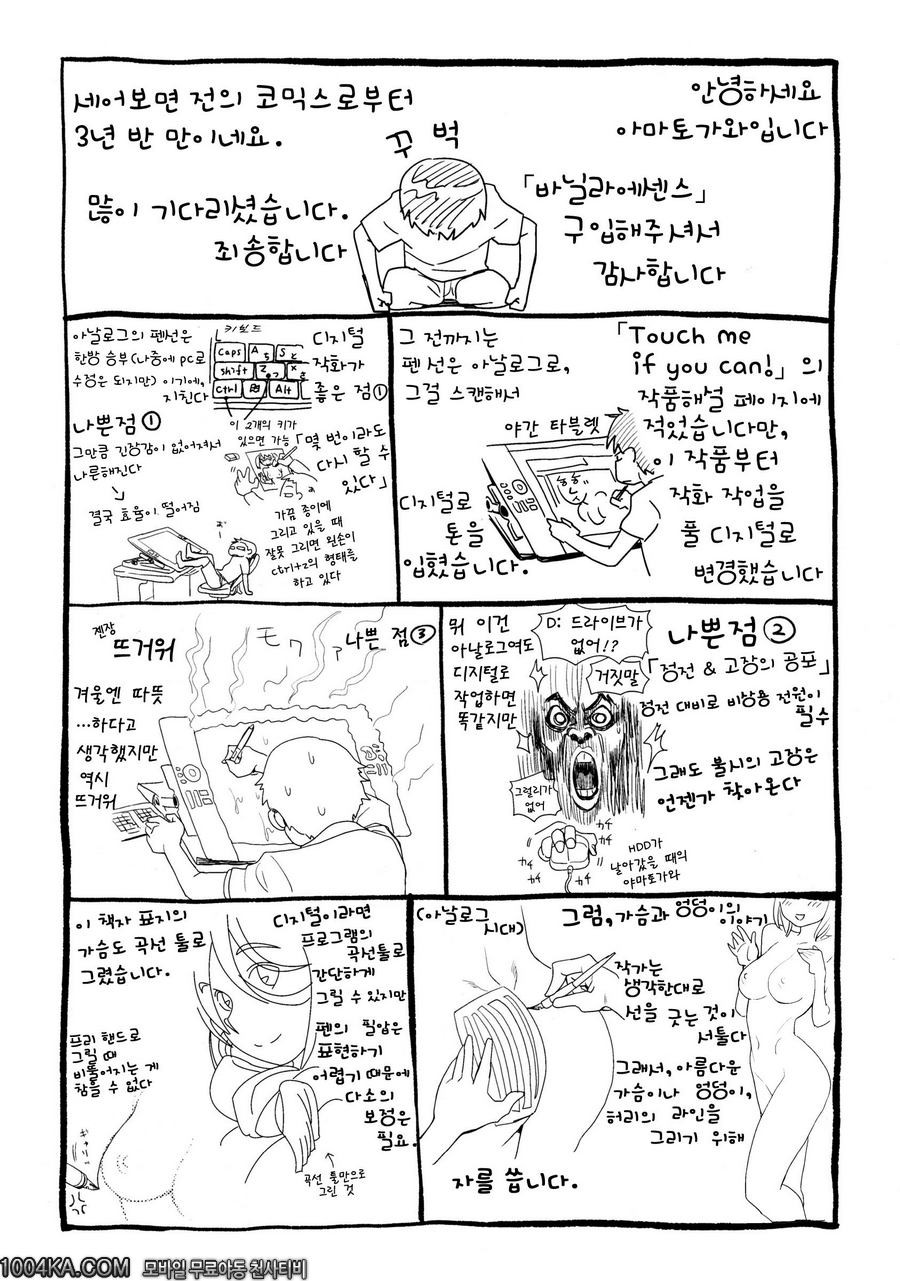 안녕하세요
아마토가와입니다
「바닐라에센스」
구입해주셔서
감사합니다
꾸벅
세어보면 전의 코믹스로부터
3년 반 만이네요.
많이 기다리셨습니다.
죄송합니다
「Touch me
if you can!」의
작품해설 페이지에
적었습니다만,
이 작품부터
작화 작업을
풀 디지털로
변경했습니다
그 전까지는
펜선은 아날로그로,
그걸 스캔해서
야간 타블렛
디지털로
톤을
입혔습니다.
디지털
작화가
좋은 점①
키보드
Caps
A
S
shift
Z
X
Ctrl
Alt
이 2개의 키가
있으면 가능
「몇 번이라도
다시 할 수
있다」
가끔 종이에
그리고 있을 때
잘못 그리면 왼손이
ctrl+z의 형태를
하고 있다
아날로그의 펜선은
한방 승부(나중에 PC로
수정은 되지만)이기에,
지친다
나쁜점①
그만큼 긴장감이 없어져서
나른해진다
결국 효율이 떨어짐
나쁜점②
「정전 & 고장의 공포」
정전 대비로 비상용 전원이
필수
그래도 불시의 고장은
언젠가 찾아온다
D: 드라이브가
없어!?
거짓말
그럴리가
없어
뭐 이건
아날로그여도
디지털로
작업하면
똑같지만
HDD가
날아갔을 때의
야마토가와
나쁜 점③
モワ
젠장
뜨거워
겨울엔 따뜻
...하다고
생각했지만
역시
뜨거워
그럼, 가슴과 엉덩이의
이야기
(아날로그
시대)
작가는
생각한대로
선을 긋는 것이
서툴다
그래서, 아름다운
가슴이나 엉덩이,
허리의 라인을
그리기 위해
자를 씁니다.
디지털이라면
프로그램의
곡선툴로
간단하게
그릴 수 있지만
펜의 필압은
표현하기
어렵기 때문에
다소의
보정은
필요.
이 책자 표지의
가슴도 곡선 툴로
그렸습니다.
프리 핸드로
그릴 때
비뚤어지는 게
참을 수 없다
곡선 툴만으로
그린 것
1004KA.COM 모바일 무료야동 천사티비